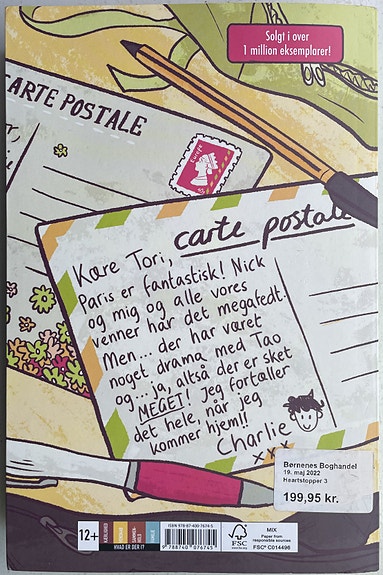 Solgt i over
1 million eksemplarer!
CARTE POSTALE
Europe
carte postale
Kære Tori,
Paris er fantastisk! Nick
og mig og alle vores
venner har det megafedt.
Men... der har været
noget drama med Tao
og... ja, altså der er sket
MEGET! Jeg fortæller
det hele, når jeg
kommer hjem!!
Charlie
xxx
Børnenes Boghandel
19. maj 2022
Heartstopper 3
199,95 kr.
12+
KÆRLIGHED
HVAD ER DER I?
ISBN 978-87-400-7674-5
9 788740 076745
FSC
www.fsc.org
MIX
Paper from
responsible sources
FSC® C014496